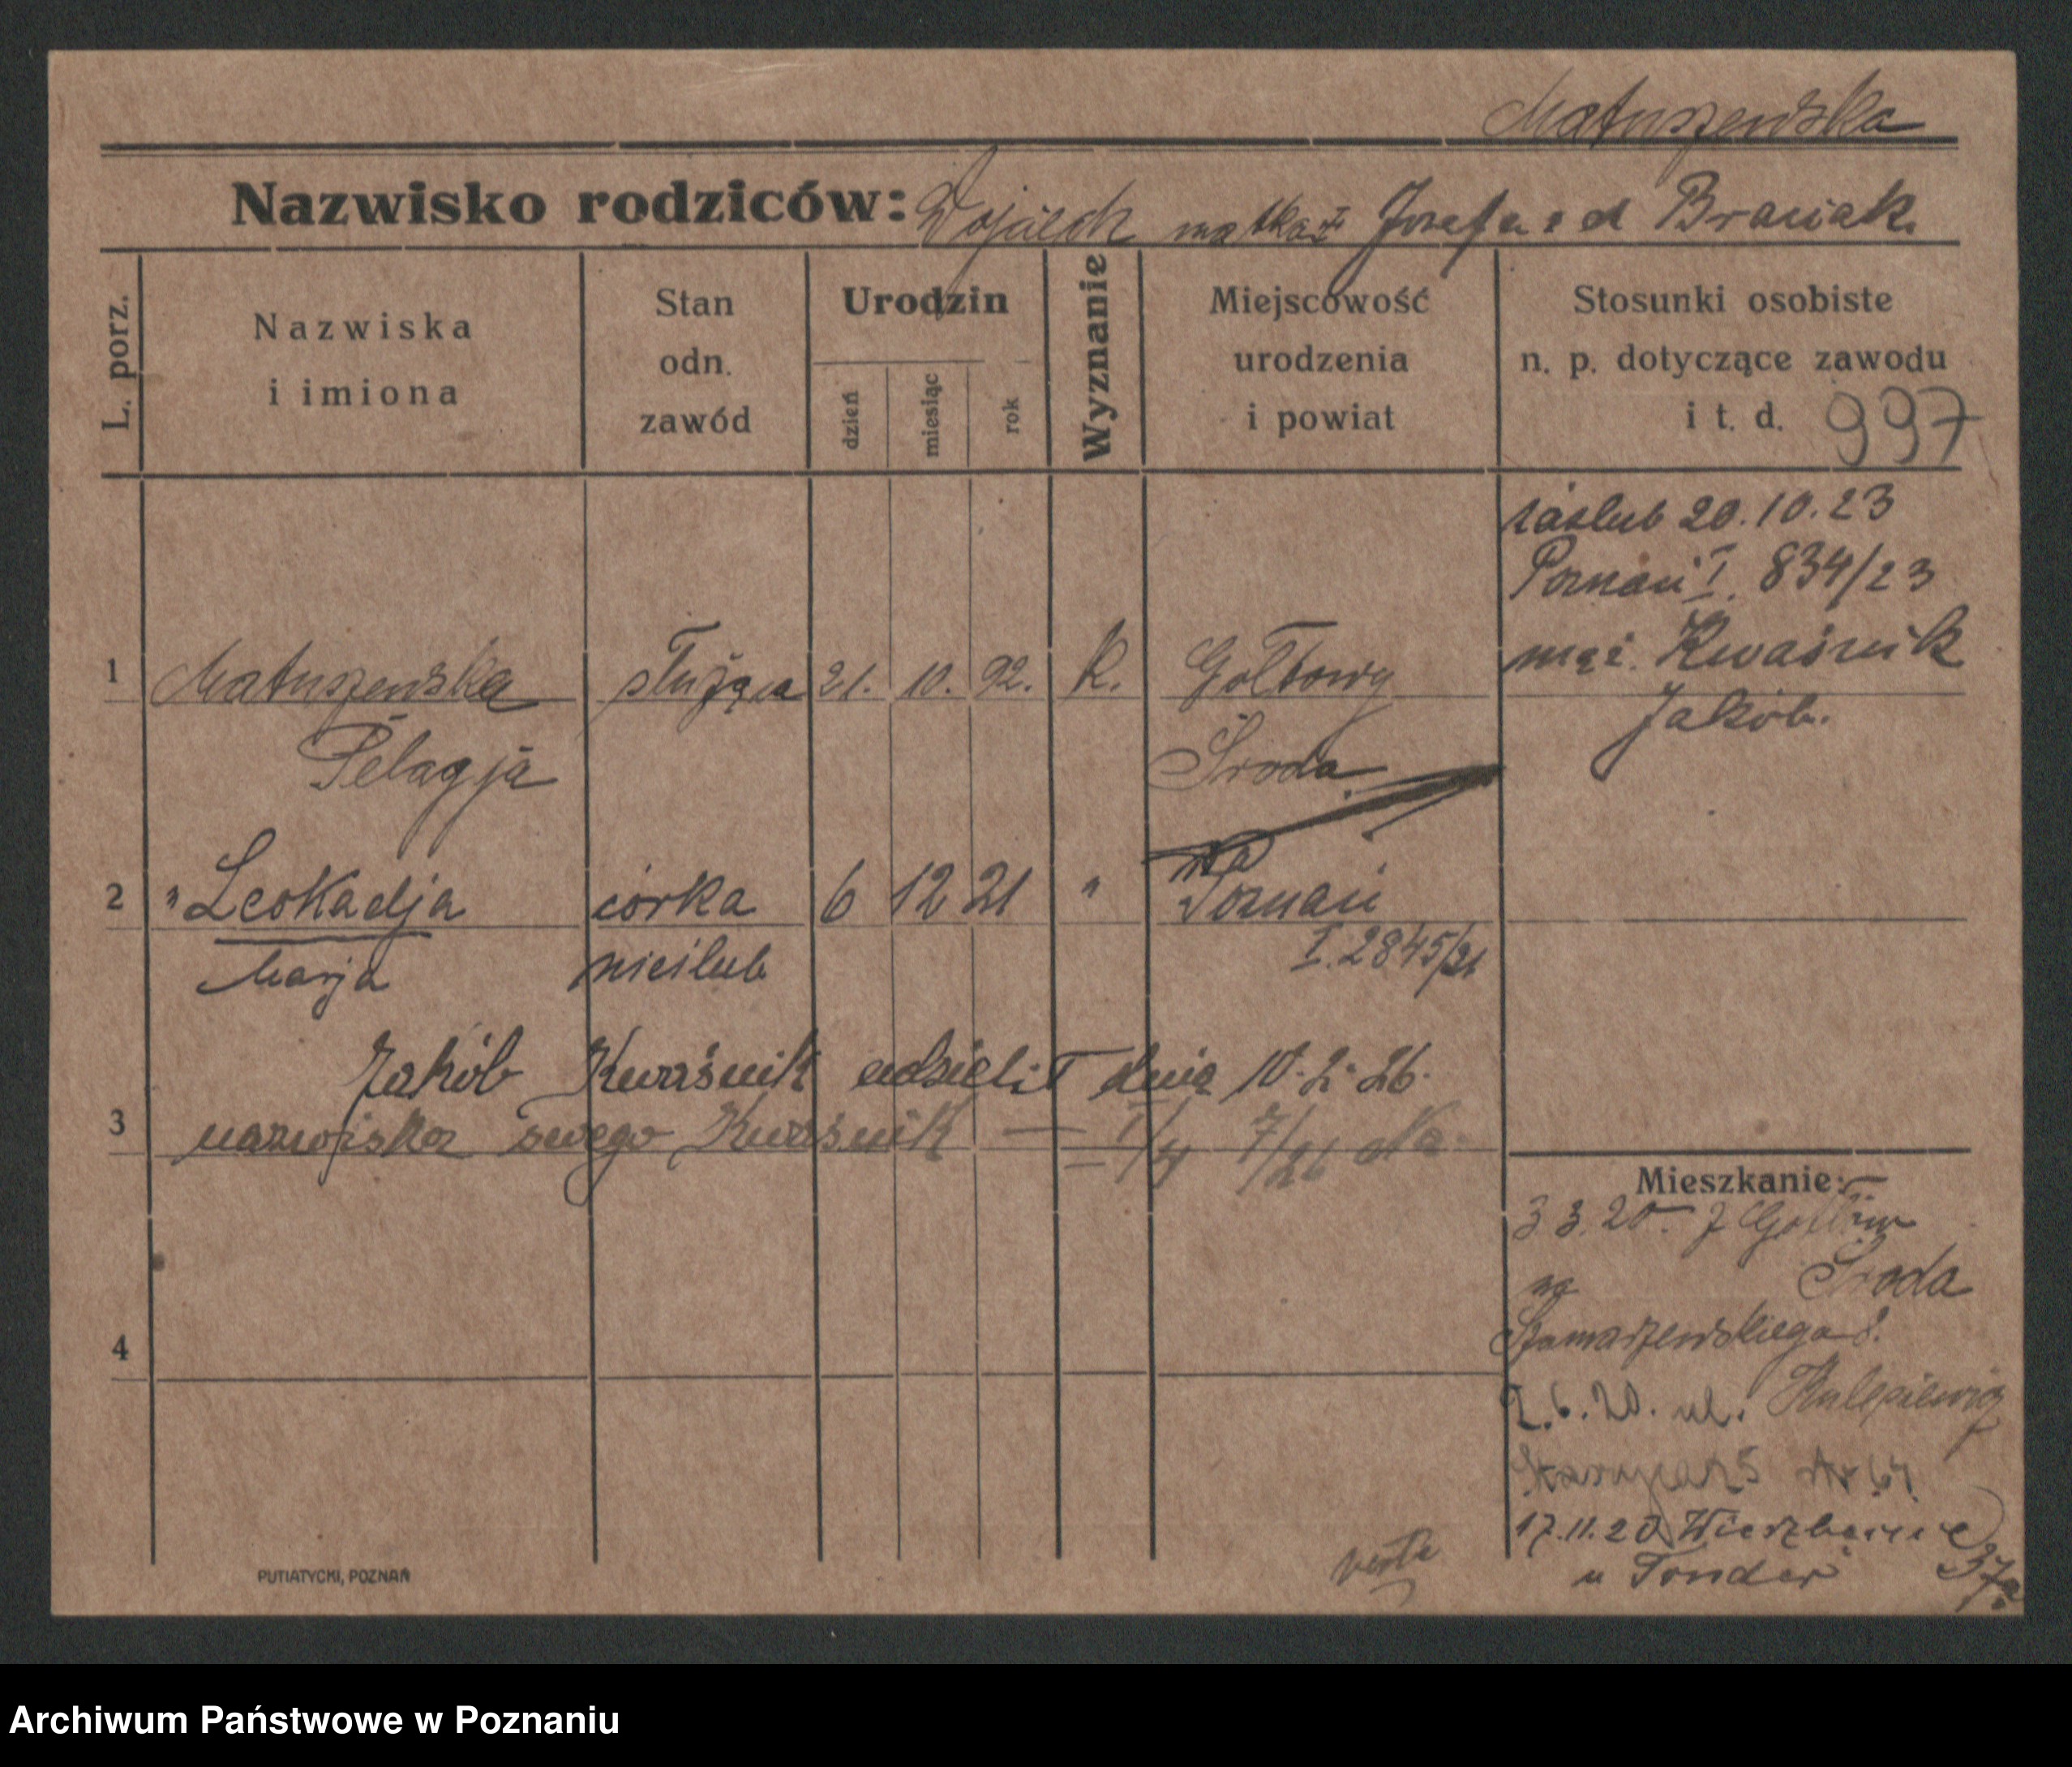 Matuszewska
Nazwisko rodziców: Wojciech matka: Józefa z d Braciak.
L. porz.
Nazwiska
i imiona
Stan
odn.
zawód
Urodzin
dzień
miesiąc
rok
Wyznanie
Miejscowość
urodzenia
i powiat
Stosunki osobiste
n. p. dotyczące zawodu
i t. d. 997
zaślub 20.10.23
Poznań I. 834/23
mąż. Kwaśnik
Jakób.
1 Matuszewska służąca 21. 10. 92. K.
Pelagja Środa
2 " Leokadja córka 6 12 21 " Poznań
Marja nieślub I. 2845/21
Jakób Kwaśnik udzielił dnia 10.2.26.
3 nazwiska swego Kwaśnik —
Mieszkanie:
3 3. 20. z
na Środa
2.6.20. ul.
Nr 64
17.11.20 Wierzbięcice
37a
u Tonder
4
verte
PUTIATYCKI, POZNAŃ
Archiwum Państwowe w Poznaniu